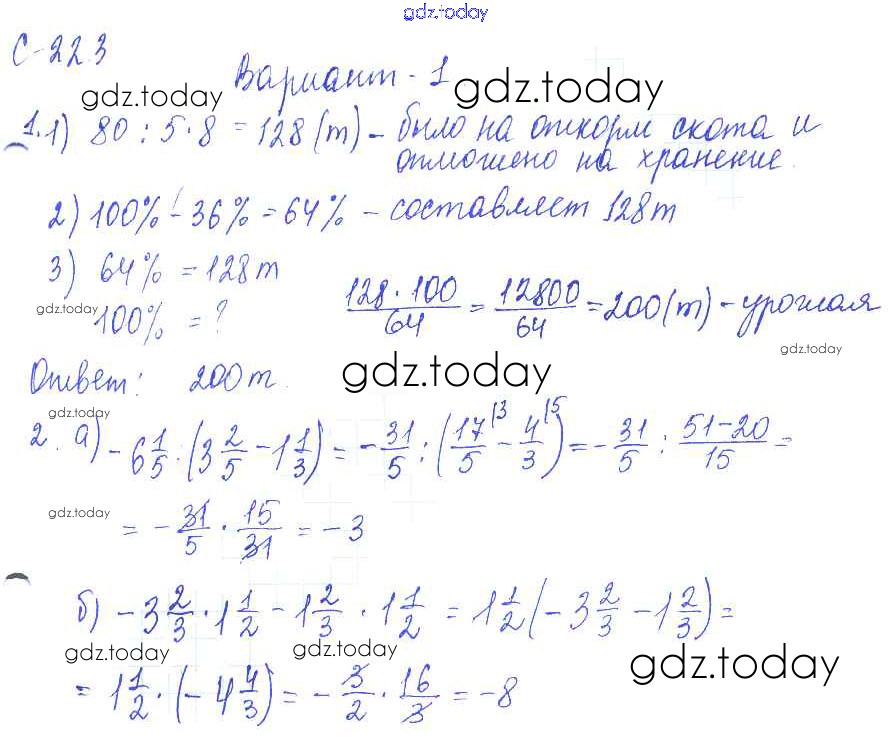 gdz.today
С-22.3
Вариант - 1
gdz.today gdz.today
1. 1) 80 : 5 · 8 = 128 (т) - было на откорм скота и
отпошено на хранение.
2) 100% - 36% = 64% - составляет 128т
3) 64% = 128т
100% = ? 128 · 100/64 = 12800/64 = 200(т) - урожая
gdz.today
gdz.today
Ответ: 200т.
gdz.today
gdz.today
2. а) -6 1/5 : (3 2/5 - 1 1/3) = -31/5 : (17/5 |3 - 4/3 |5) = -31/5 : 51-20/15 =
gdz.today
= -31/5 · 15/31 = -3
б) -3 2/3 · 1 1/2 - 1 2/3 · 1 1/2 = 1 1/2 (-3 2/3 - 1 2/3) =
gdz.today gdz.today gdz.today
= 1 1/2 · (-4 4/3) = -3/2 · 16/3 = -8